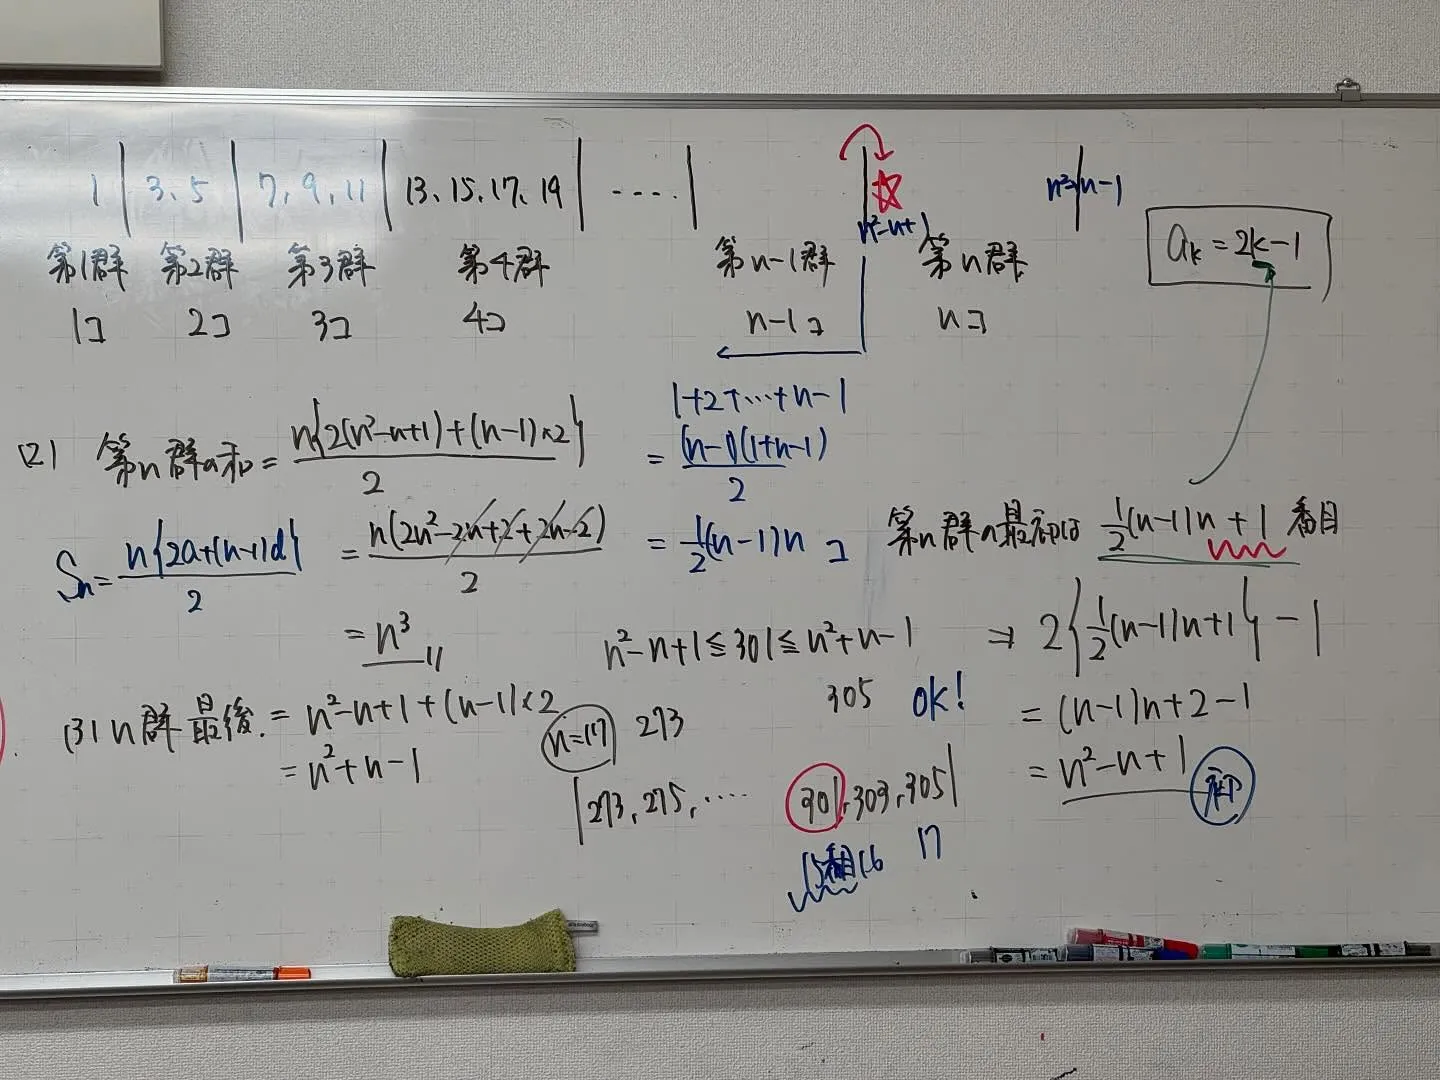 1 | 3、5 | 7, 9, 11 | 13、15, 17、19 | ---- |
☆ n²-n+1
n²+n-1
第1群 第2群 第3群 第4群 第n-1群 第n群
1コ 2コ 3コ 4コ n-1コ nコ
aₖ = 2k-1
1+2+…+n-1
= (n-1)(1+n-1)/2
= 1/2(n-1)n コ
第n群の最初は 1/2(n-1)n+1 番目
⇒ 2{1/2(n-1)n+1}-1
= (n-1)n+2-1
= n²-n+1 初
(2) 第n群の和 = n{2(n²-n+1)+(n-1)×2}/2
Sₙ = n{2a+(n-1)d}/2
= n(2n²-2n+2+2n-2)/2
= n³
(3) n群最後. = n²-n+1+(n-1)×2
= n²+n-1
n²-n+1≦301≦n²+n-1
305 ok!
n=17 273
|273, 275, ‥‥ 301, 303, 305|
15番目 16 17